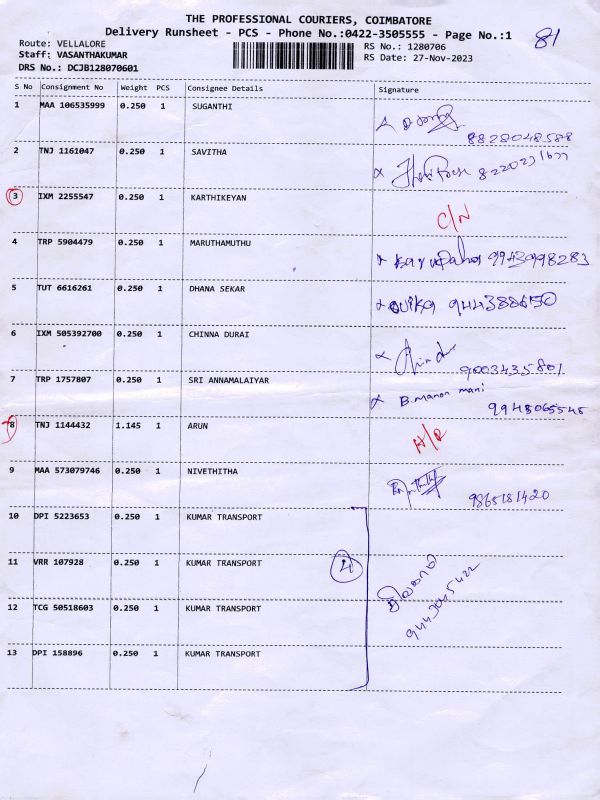 THE PROFESSIONAL COURIERS, COIMBATORE
Delivery Runsheet - PCS - Phone No.:0422-3505555 - Page No.:1
81
Route: VELLALORE
RS No.: 1280706
Staff: VASANTHAKUMAR
RS Date: 27-Nov-2023
DRS No.: DCJB128070601
S No Consignment No Weight PCS Consignee Details Signature
1 MAA 106535999 0.250 1 SUGANTHI
8828048588
2 TNJ 1161047 0.250 1 SAVITHA
3 IXM 2255547 0.250 1 KARTHIKEYAN C/N
4 TRP 5904479 0.250 1 MARUTHAMUTHU
9943998283
5 TUT 6616261 0.250 1 DHANA SEKAR
6 IXM 505392700 0.250 1 CHINNA DURAI
9003435801
7 TRP 1757807 0.250 1 SRI ANNAMALAIYAR B. Manon mani
9948065545
8 TNJ 1144432 1.145 1 ARUN
9 MAA 573079746 0.250 1 NIVETHITHA
9865181420
10 DPI 5223653 0.250 1 KUMAR TRANSPORT
11 VRR 107928 0.250 1 KUMAR TRANSPORT 4
12 TCG 50518603 0.250 1 KUMAR TRANSPORT
13 DPI 158896 0.250 1 KUMAR TRANSPORT